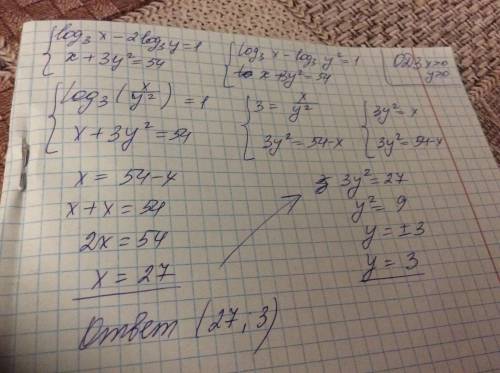 { log₃ x − 2 log₃ y = 1
x + 3y² = 54
{ log₃ x − log₃ y² = 1
x + 3y² = 54
ОДЗ x>0
y>0
{ log₃ (x/y²) = 1
x + 3y² = 54
{ 3 = x/y²
3y² = 54-x
{ 3y² = x
3y² = 54-x
x = 54-x
x + x = 54
2x = 54
x = 27
3y² = 27
y² = 9
y = ±3
y = 3
Ответ (27; 3)